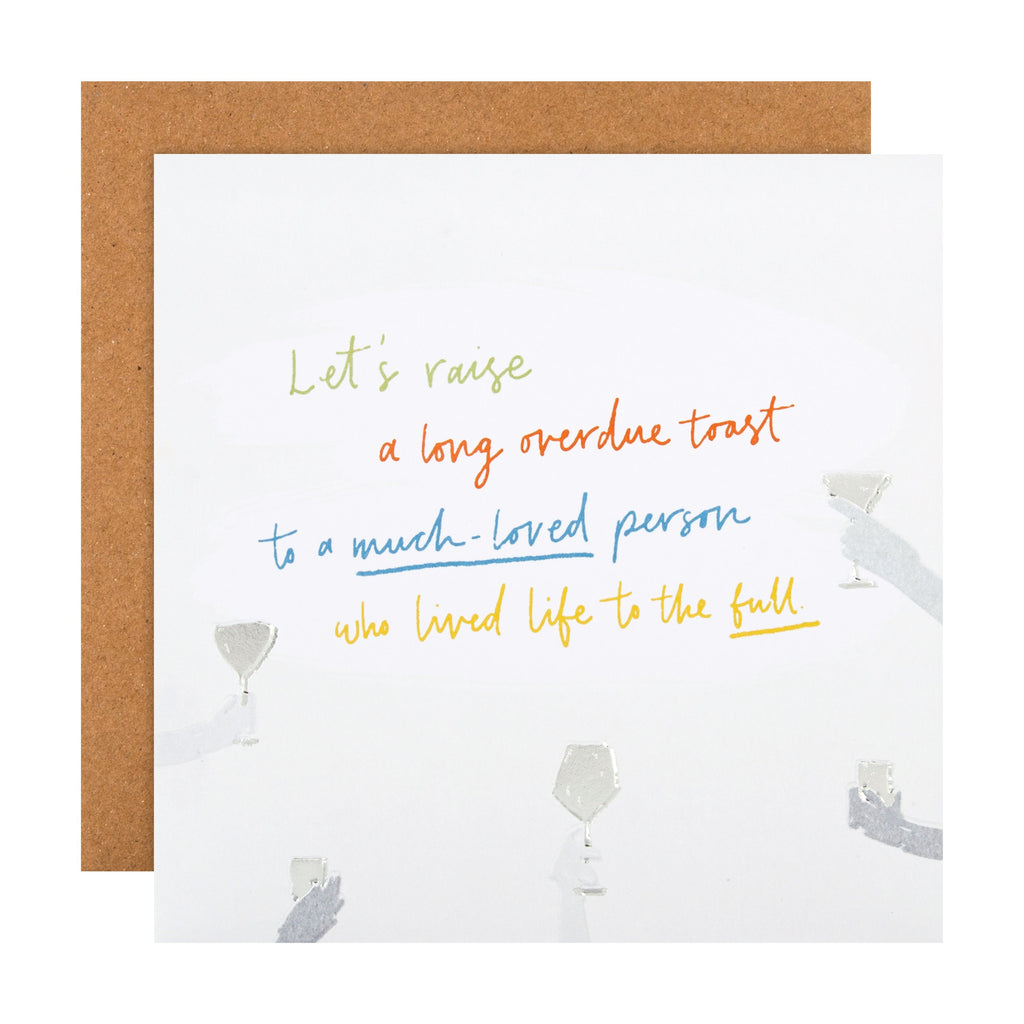 Let's raise
a long overdue toast
to a much-loved person
who lived life to the full.